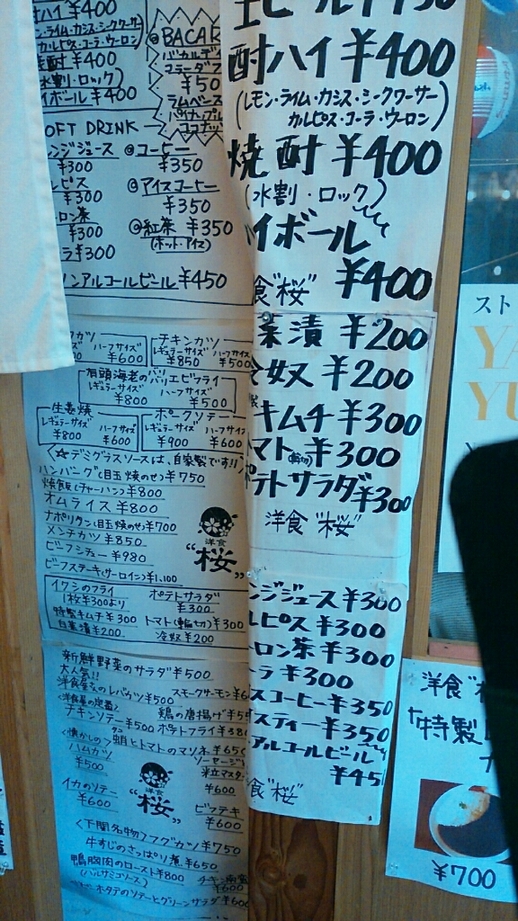 ハイ ¥400
ン・ライム・カシス・シークワーサー
カルピス・コーラ・ウーロン)
焼酎 ¥400
(水割・ロック)
イボール ¥400
@BACAR
バカルデ
¥50
ラムベース
OFT DRINK
ンジジュース
¥300
ルピス
¥300
ロン茶
¥300
ラ¥300
@コーヒー
¥350
@アイスコーヒー
¥350
@紅茶 ¥350
(ホット・アイス)
ノンアルコールビール ¥450
カツ
ハーフサイズ
¥600
チキンカツ
レギュラーサイズ ハーフサイズ
¥850 ¥500
有頭海老のバリバリエビフライ
レギュラーサイズ ハーフサイズ
¥800 ¥500
生姜焼
レギュラーサイズ ハーフサイズ
¥800 ¥600
ポークソテー
レギュラーサイズ ハーフサイズ
¥900 ¥600
デミグラスソースは、自家製です!!
ハンバーグ(目玉焼のせ)¥750
焼飯(チャーハン)¥800
オムライス ¥800
ナポリタン(目玉焼のせ)¥700
メンチカツ ¥850
ビーフシチュー ¥980
ビーフステーキ(サーロイン)¥1,100
洋食
“桜”
イワシのフライ
1枚¥300より
特製キムチ ¥300
白菜漬 ¥200
ポテトサラダ
¥300
トマト(輪切)¥300
冷奴 ¥200
新鮮野菜のサラダ ¥500
大人気!!
洋食屋さんのレバカツ ¥500
スモークサーモン ¥6
(洋食屋の定番)
チキンソテー ¥500
鶏の唐揚げ
ポテトフライ
<懐かしの>
ハムカツ
¥500
蛸とトマトのマリネ ¥650
ソーセージ
粒マスタ
¥600
イカのソテー
¥600
洋食
“桜”
ビフテキ
¥600
<下関名物>フグカツ ¥750
牛すじのさっぱり煮 ¥650
鴨胸肉のロースト ¥800
(バルサミコソース)
ホタテのソテーとグリーンサラダ
生ビール
酎ハイ ¥400
(レモン・ライム・カシス・シークワーサー
カルピス・コーラ・ウーロン)
焼酎 ¥400
(水割・ロック)
イボール
¥400
食“桜”
菜漬 ¥200
奴 ¥200
キムチ ¥300
マト(輪切) ¥300
テトサラダ ¥300
洋食 “桜”
ンジジュース ¥300
ルピス ¥300
ロン茶 ¥300
ラ ¥300
スコーヒー ¥350
スティー ¥350
アルコールビール
¥45
食“桜”
スト
YA
YU
洋食
「特製
¥700